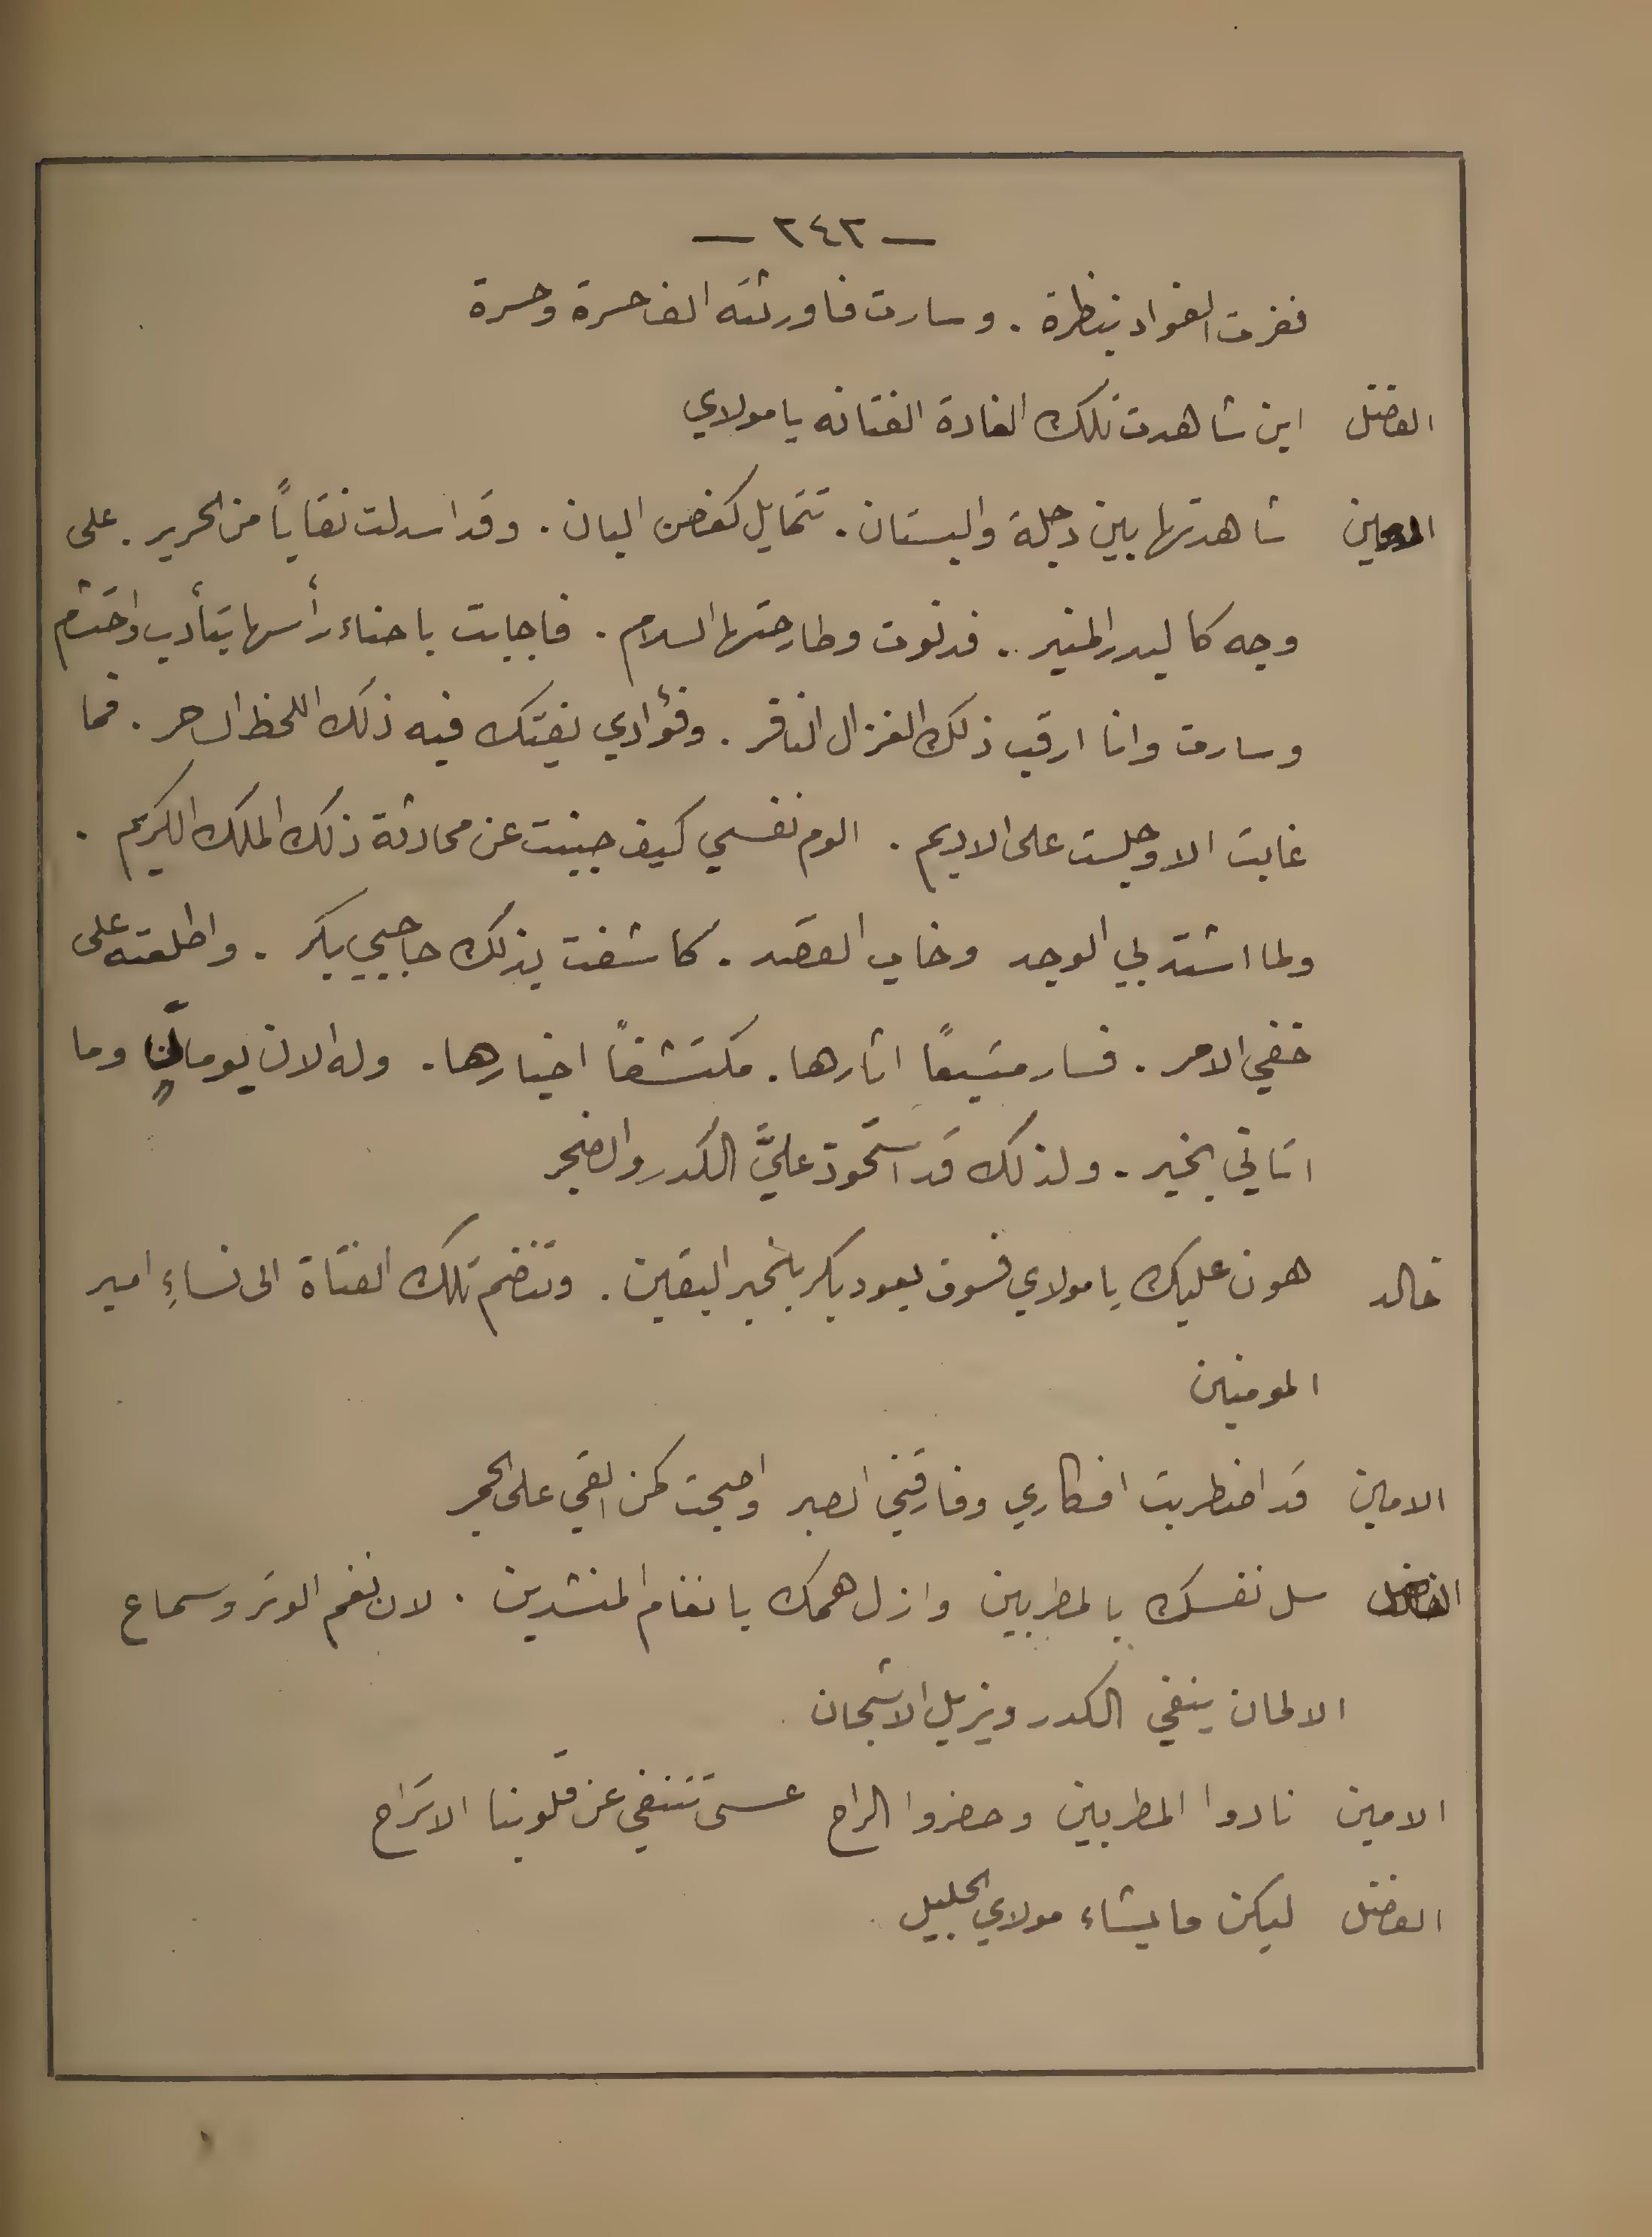 — ٢٤٢ —
فغزت الفواد بنظرة . وسارت فاورثته الف حسرة وحسرة
الفضل اين شاهدت تلك الغادة الفتانه يا مولاي
الامين شاهدتها بين دجلة والبستان . تتمايل كغصن البان . وقد اسدلت نقاباً من الحرير . على
وجه كالبدر المنير . فدنوت وطارحتها السلام . فاجابت باحناء رأسها بتأدب واحتشام
وسارت وانا ارقب ذلك الغزال النافر . وفؤادي يفتك فيه ذلك اللحظ الساحر . فما
غابت الا وجلست على الاديم . الوم نفسي كيف جبنت عن محادثة ذلك الملك الكريم .
ولما اشتد بي الوجد وخاب القصد . كاشفت بذلك حاجبي بكر . واطلعته على
خفي الامر . فسار متبعاً اثارها . مكتشفاً اخبارها . وله الان يومان وما
اتاني بخبر . ولذلك قد استحوذ عليَّ الكدر والضجر
خالد هون عليك يا مولاي فسوف يعود بكر بالخبر اليقين . وتنضم تلك الفتاة الى نساءِ امير
المومنين
الامين قد اضطربت افكاري وفارقني الصبر واصبحت كمن القي على الجمر
الفضل سل نفسك بالمطربين وازل همك بانغام المنشدين . لان نغم الوتر وسماع
الالحان ينفي الكدر ويزيل الاشجان
الامين نادوا المطربين وحضروا الراح عسى تنتفي عن قلوبنا الاتراح
الفضل ليكن ما يشاء مولاي الجليل